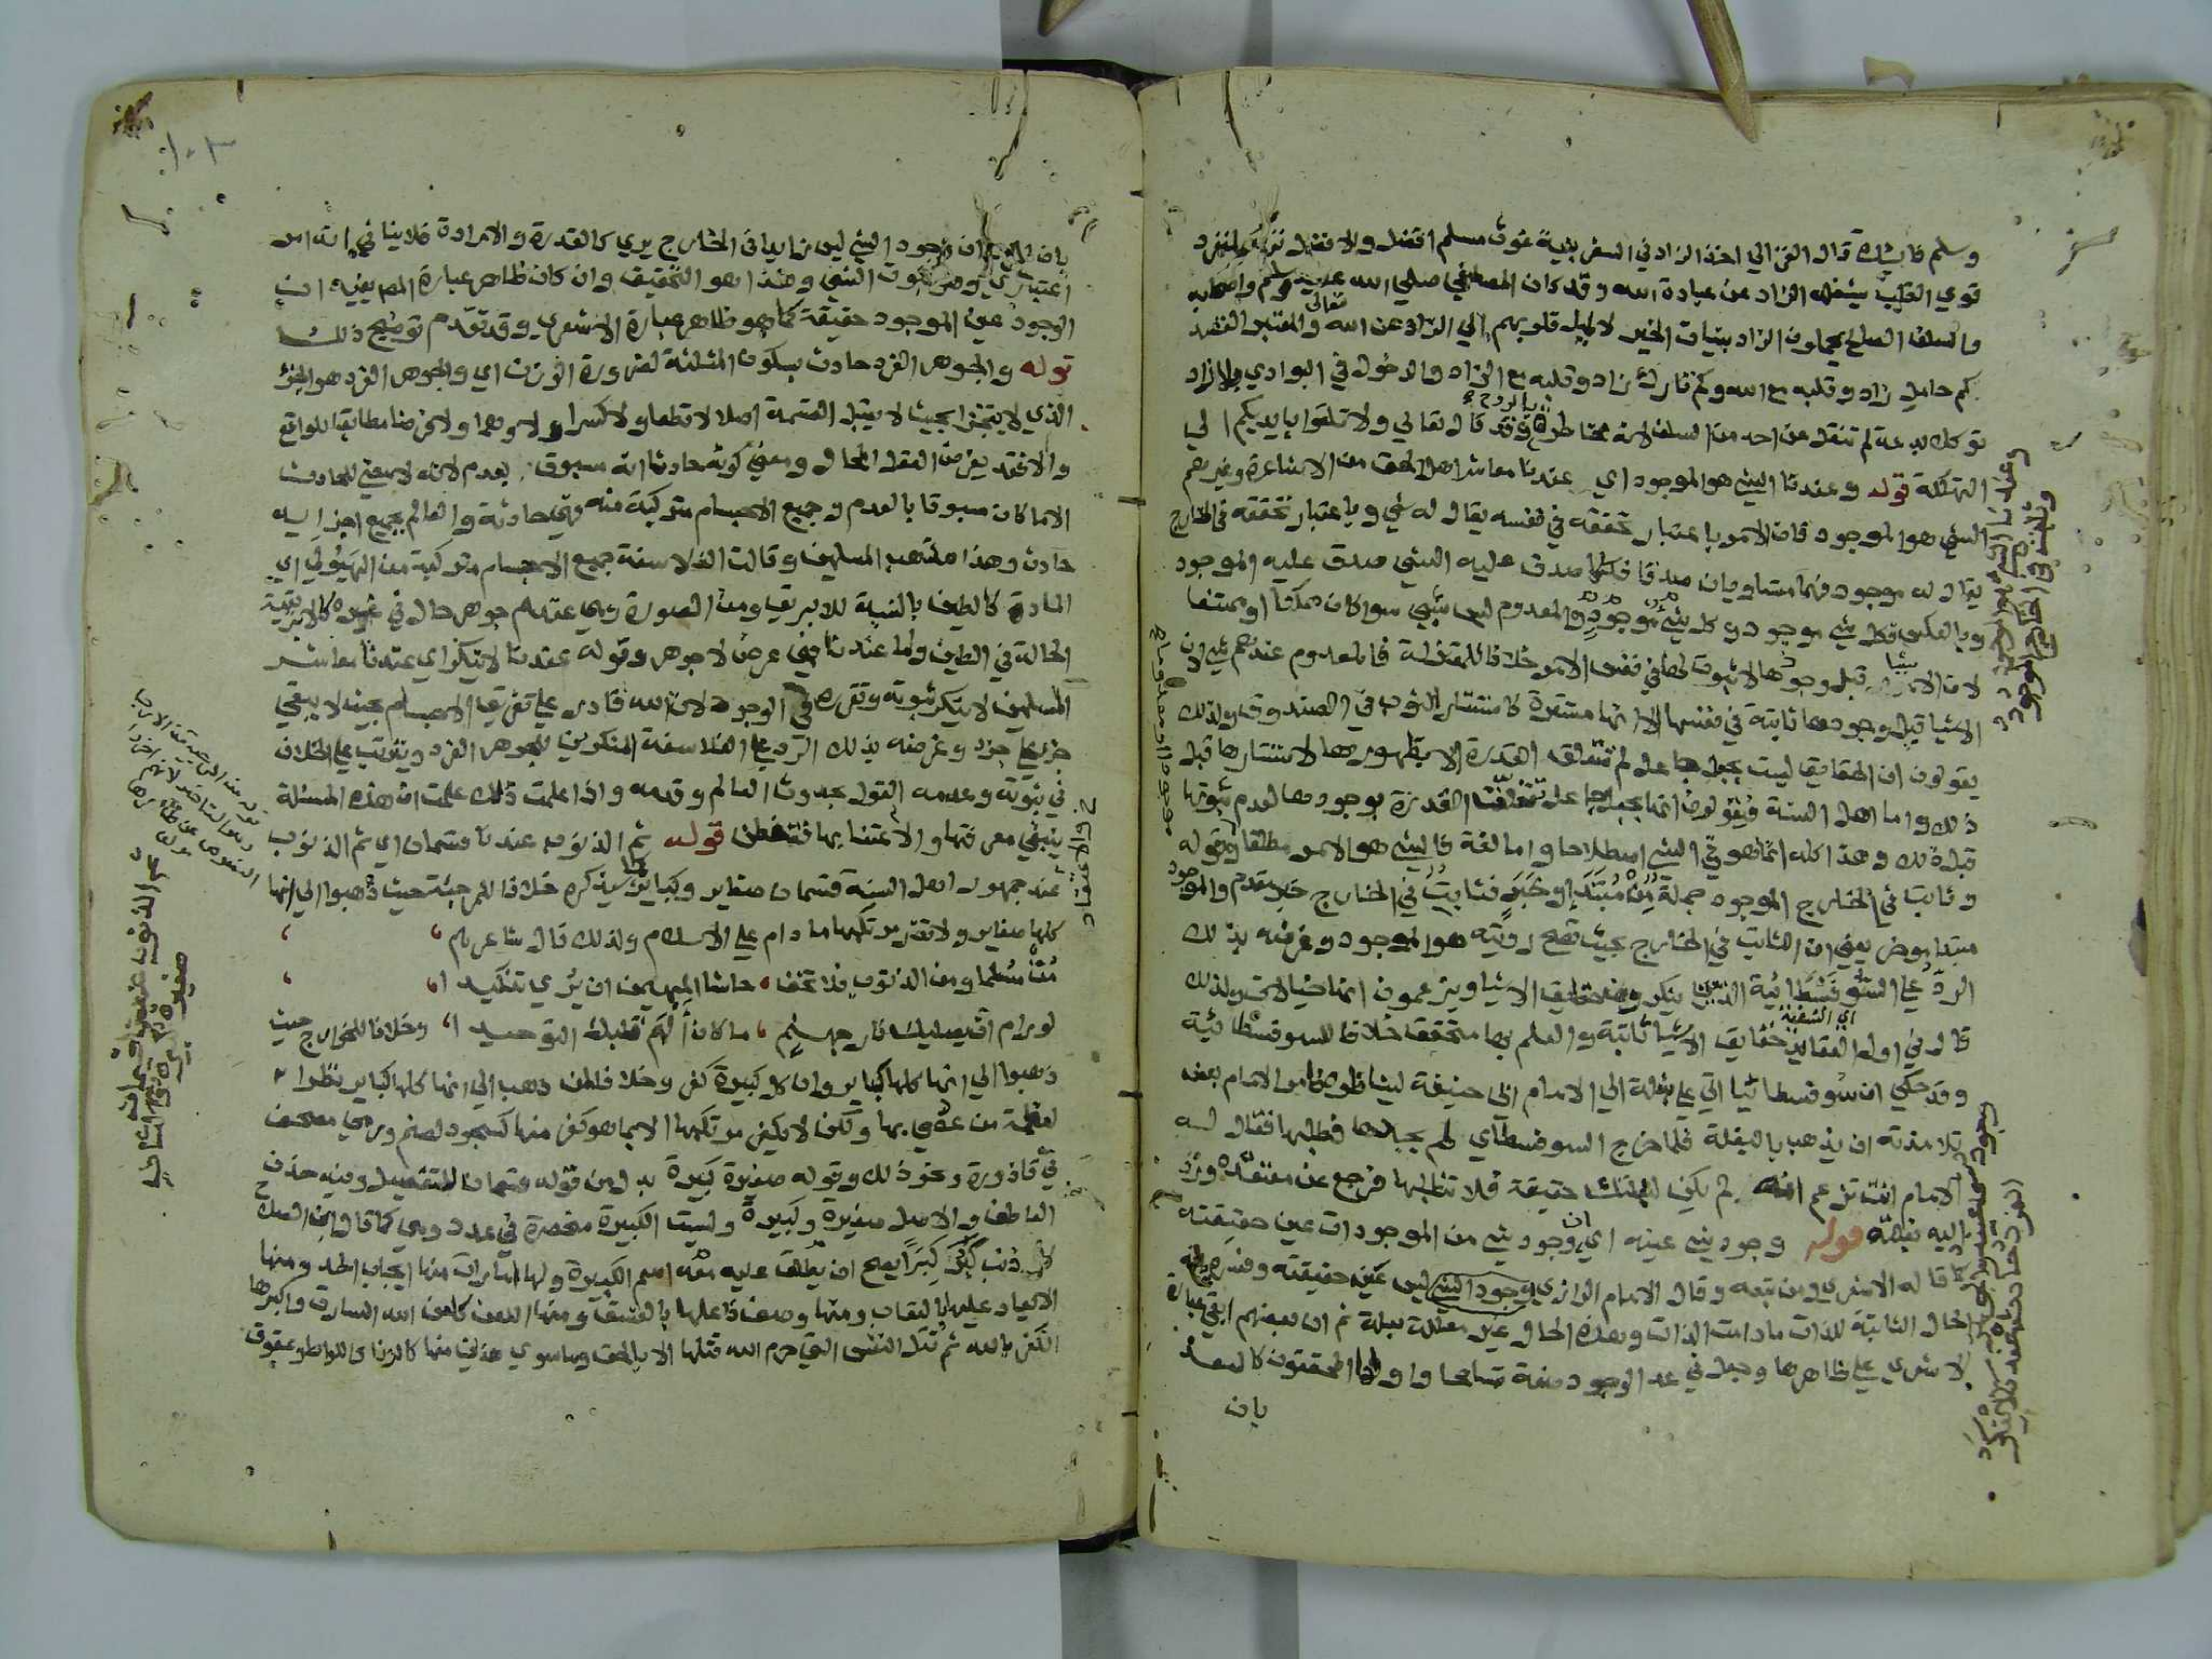 وسلم فائدة قال الغزالي اخذ الزاد في السفر بنية عون مسلم افضل والافضل تركه لمنفرد
قوي القلب يشغله الزاد عن عبادة الله وقد كان المصطفي صلي الله عليه وسلم واصحابه
والسلف الصلح يحملون الزاد بنيات الخير لا لميل قلوبهم الي الزاد عن الله تعالي والمعتبر القصد
كم حامل زاد وقلبه مع الله وكم تارك زاد وقلبه مع الزاد والدخول في البوادي بلا زاد
توكلا بدعة لم تنقل عن احد من السلف لانه مخاطرة بالروح وقد قال تعالي ولا تلقوا بايديكم الي
التهلكة قوله وعندنا الشي هو الموجود اي عندنا معاشر اهل الحق من الاشاعرة وغيرهم
الشي هو الموجود فان الامر باعتبار تحققه في نفسه يقال له شي وباعتبار تحققه في الخارج
يقال له موجود فهما متساويان صدقا فكلما صدق عليه الشي صدق عليه الموجود
وبالعكس فكل شي موجود وكل موجود شي والمعدوم ليس بشي سوا كان ممكنا او ممتنعا
لان الاشيا قبل وجودها لا ثبوت لها في نفس الامر خلافا للمعتزلة فالمعدوم عندهم شي لان
الاشيا قبل وجودها ثابتة في نفسها الا انها مستترة كاستتار الثوب في الصندوق ولذلك
يقولون ان الحقايق ليست بجعل جاعل لم تتعلق القدرة الا بظهورها لاستتارها قبل
ذلك واما اهل السنة فيقولون انها بجعل جاعل تعلقت القدرة بوجودها لعدم ثبوتها
قبل ذلك وهذا كله انما هو في الشي اصطلاحا واما لغة فالشي هو الامر مطلقا وقوله
وثابت في الخارج الموجود جملة من مبتدا وخبر فثابت في الخارج خبر مقدم والموجود
مبتدا موخر يعني ان الثابت في الخارج بحيث تصح رويته هو الموجود وغرضه بذلك
الرد علي السوفسطائية الذين ينكرون حقايق الاشيا ويزعمون انها خيالات ولذلك
قال في اول العقايد اي النسفية حقايق الاشيا ثابتة والعلم بها متحقق خلافا للسوفسطائية
وقد حكي ان سوفسطائيا اتي علي بغلة الي الامام ابي حنيفة ليناظره فامر الامام بعض
تلامذته ان يذهب بالبغلة فلما خرج السوفسطاي لم يجدها فطلبها فقال له
الامام انت تزعم انه لم يكن لبغلتك حقيقة فلا تطلبها فرجع عن معتقده ورد
اليه بغلته قوله وجود شي عينه اي ان وجود شي من الموجودات عين حقيقته
كما قاله الاشعري ومن تبعه وقال الامام الرازي وجود الشي ليس عين حقيقته وفسره
الحال الثابتة للذات مادامت الذات وهذه الحال غير معللة بعلة ثم ان بعضهم ابقي عبارة
الاشعري علي ظاهرها وجعل في عد الوجود صفة تسامحا واولها المحققون كالسعد
بان
بان المراد ان وجود الشي ليس زايدا في الخارج يري كالقدرة والارادة فلا ينافي انه امر
اعتباري وهو ثبوت الشي وهذا هو التحقيق وان كان ظاهر عبارة المص يفيد ان
الوجود عين الموجود حقيقة كما هو ظاهر عبارة الاشعري وقد تقدم توضيح ذلك
قوله والجوهر الفرد حادث بسكون المثلثة لضرورة الوزن اي والجوهر الفرد هو الجزؤ
الذي لا يتجزا بحيث لا يقبل القسمة اصلا لا قطعا ولا كسرا ولا وهما ولا فرضا مطابقا للواقع
والا فقد يفرض العقل المحال ومعني كونه حادثا انه مسبوق بعدم لانه لا معني للحادث
الا ما كان مسبوقا بالعدم وجميع الاجسام متركبة منه فهي حادثة والعالم بجميع اجزايه
حادث وهذا مذهب المسلمين وقالت الفلاسفة جميع الاجسام متركبة من الهيولي اي
المادة كالطين بالنسبة للابريق ومن الصورة وهي عندهم جوهر حال في غيره كالابريقية
الحالة في الطين واما عندنا فهي عرض لا جوهر وقوله عندنا لا ينكر اي عندنا معاشر
المسلمين لا ينكر ثبوته وتقرره في الوجود لان الله قادر علي تفريق الاجسام بحيث لا يبقي
جزء علي جزء وغرضه بذلك الرد علي الفلاسفة المنكرين للجوهر الفرد ويترتب علي الخلاف
في ثبوته وعدمه القول بحدوث العالم وقدمه واذا علمت ذلك علمت ان هذه المسئلة
ينبغي معرفتها والاعتنا بها فتفطن قوله ثم الذنوب عندنا قسمان اي ثم الذنوب
عند جمهور اهل السنة قسمان صغاير وكباير كما سيذكره خلافا للمرجئة حيث ذهبوا الي انها
كلها صغاير ولا تضر مرتكبها مادام علي الاسلام ولذلك قال شاعرهم
مت مسلما ومن الذنوب فلا تخف حاشا المهيمن ان يري تنكيدا
لو رام ان يصليك نار جهنم ما كان الهم قلبك التوحيدا وخلافا للخوارج حيث
ذهبوا الي انها كلها كباير وان كل كبيرة كفر وخلافا لمن ذهب الي انها كلها كباير نظرا
لعظمة من عصي بها ولكن لا يكفر مرتكبها الا بما هو كفر منها كسجود لصنم ورمي مصحف
في قاذورة ونحو ذلك وقوله صغيرة كبيرة بدل من قوله قسمان للتفصيل وفيه حذف
العاطف والاصل صغيرة وكبيرة وليست الكبيرة منحصرة في عدد وهي كما قال ابن الصلاح
كل ذنب كبر كبرا يصح ان يطلق عليه معه اسم الكبيرة ولها امارات منها ايجاب الحد ومنها
الايعاد عليها بالعقاب ومنها وصف فاعلها بالفسق ومنها اللعن كلعن الله السارق واكبرها
الكفر بالله ثم قتل النفس التي حرم الله قتلها الا بالحق وما سوي هذين منها كالزنا واللواط وعقوق